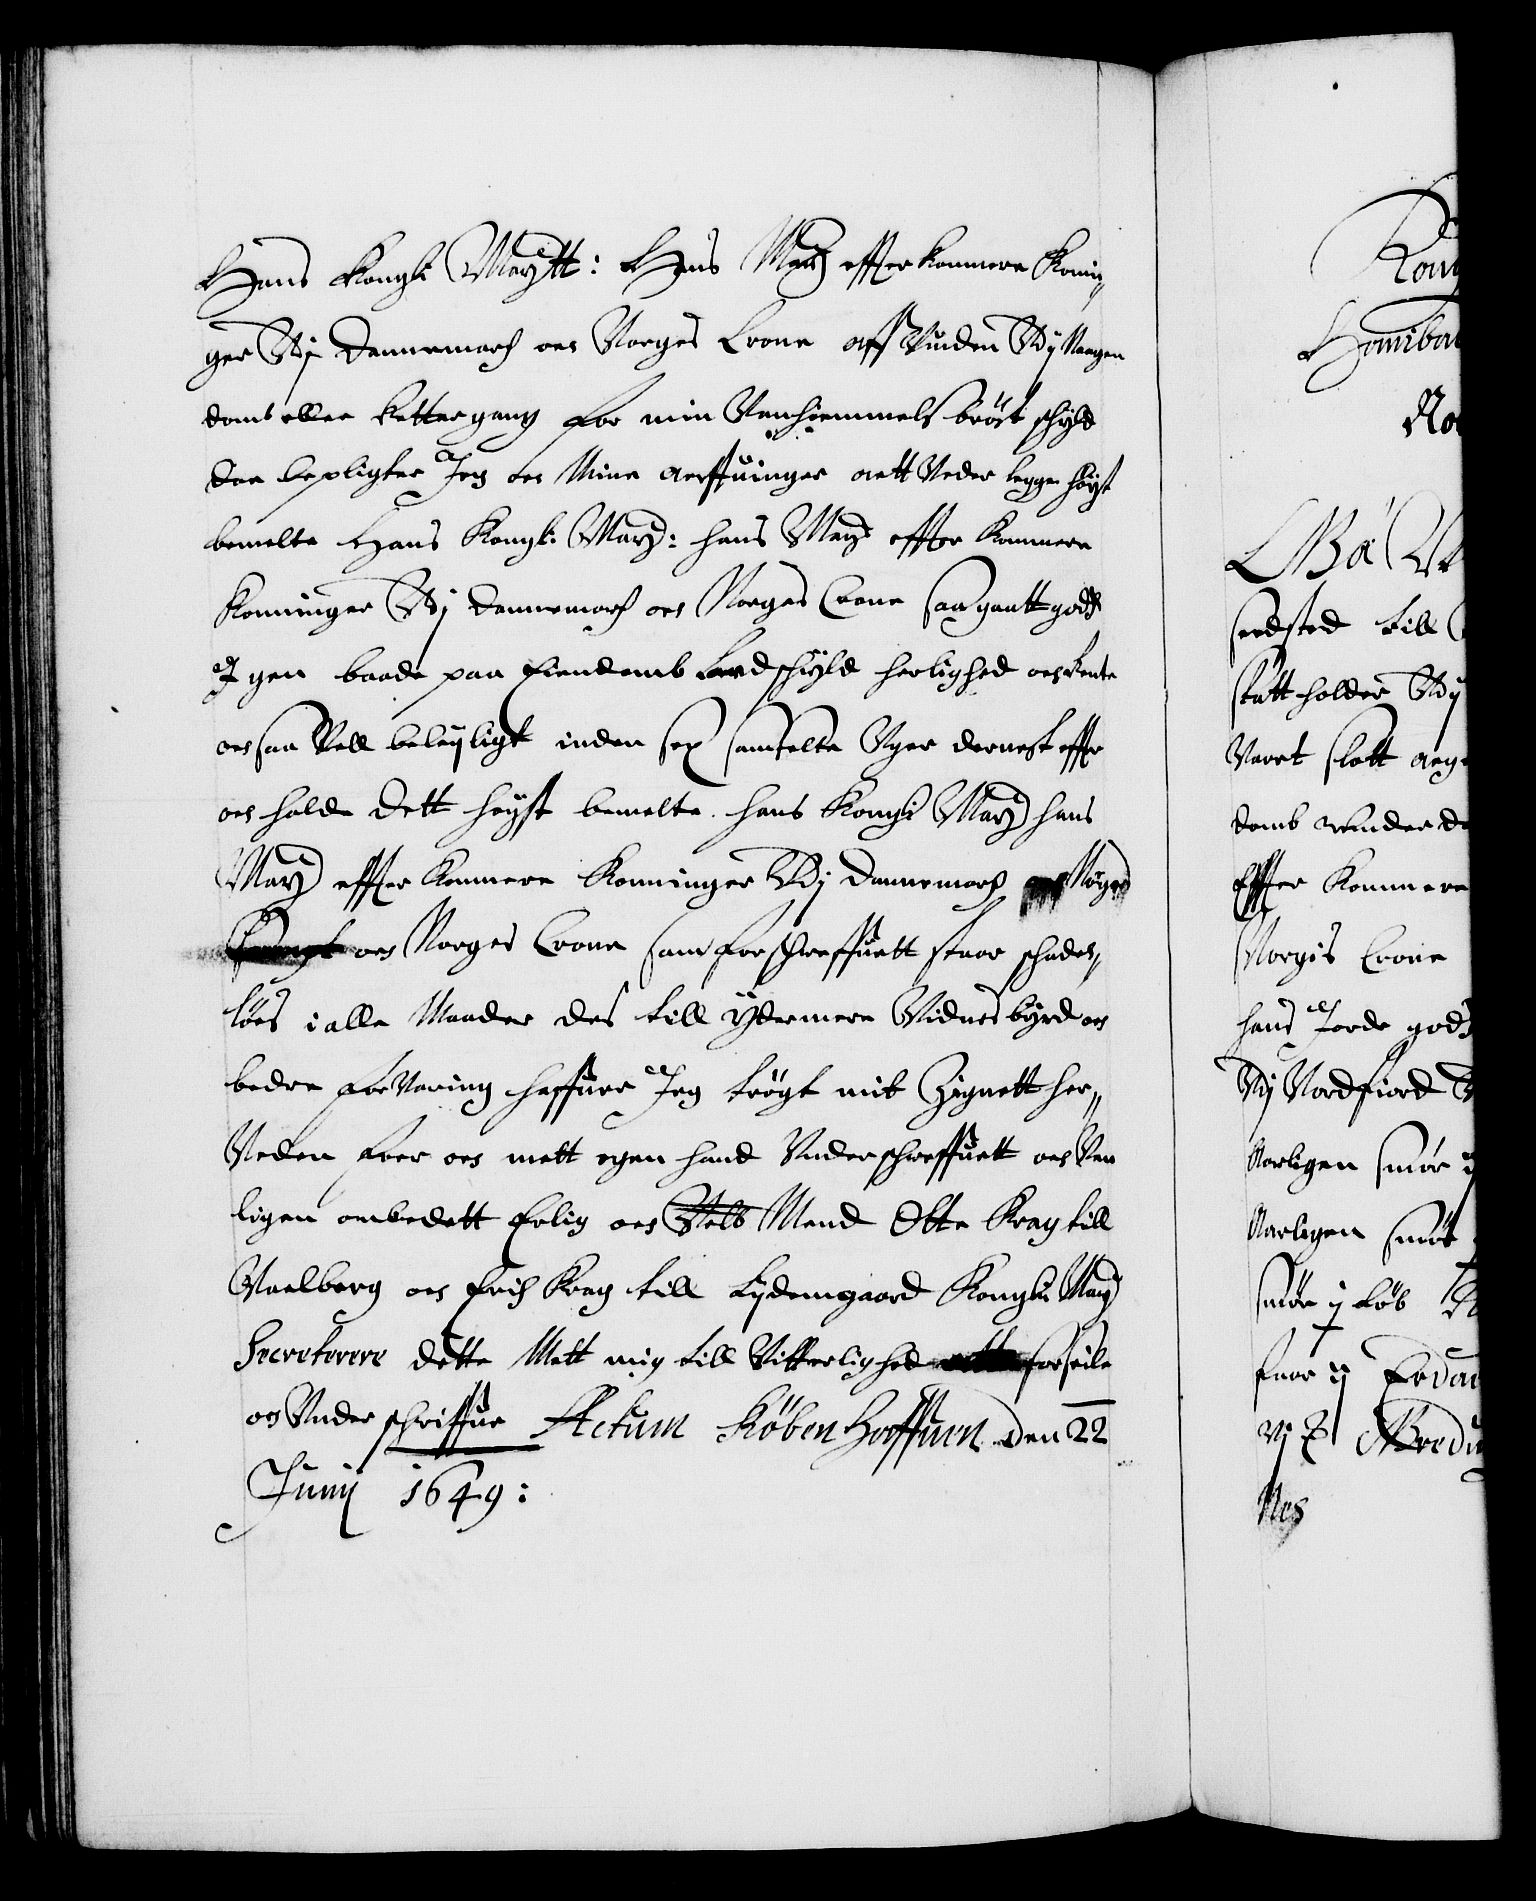 Hans Kongli Maytt: Hans May effterkommere Konin„
ger Udj Dannemarch oc Norges Crone aff Vinden Udj Nogen
domb eller Rettergang for min Vanhiemmels bröst schyld
daa bepligter Jeg oc Mine arffuinger att Veder legge höyst
bemelte Hans Kongl: May: hans May: effter kommere
Konninger Udj Dannemarch oc Norges Crone saa gaatt godtz
I gen baade paa Eiendomb Landschyld herlighed oc Rente
oc saa Vell beleyligt inden sex samfelte Uger dernest effter
oc holde dett höyst bemelte hans Kongli May hans
May effter kommere Konninger Udj Dannemarch
oc Norges Crone som forschreffuett staar schades„
löes i alle Maader des till ydermere Vidnesbyrd oc
bedre forVaring haffuer Jeg trögt mit Zignett her„
Neden foer oc mett egen hand Underschreffuett oc Ven
ligen ombedett Erlig oc Velb Mend Otte Krag till
Voelberg oc Erich Krag till Lydomgaard Kongl: May
Secreterere dette Mett mig till Vitterlighed forseile
oc Underschriffue Actum KöbenHaffuen den 22
Junij 1649:
Kong
Hannibal
No
Wii
seedsted till
statt holder Udj
Varet slott
domb
Effter kommere
Norgis Crone
hans Jorde godz
Udj Nordfiord
Aarligen smör
Aarligen smör
smör ij Löb
faar ij
Nes